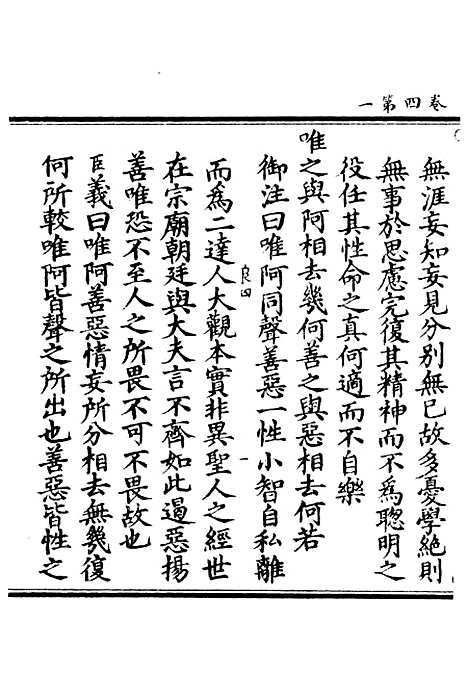 卷四第一
無涯妄知妄見分别無已故多憂學絶則
無事於思慮完復其精神而不爲聰明之
役任其性命之真何適而不自樂
唯之與阿相去幾何善之與惡相去何若
御注曰唯阿同聲善惡一性小智自私離
而爲二達人大觀本實非異聖人之經世
良四
一
在宗廟朝廷與大夫言不齊如此遏惡揚
善唯恐不至人之所畏不可不畏故也
臣義曰唯阿善惡情妄所分相去無幾復
何所較唯阿皆聲之所出也善惡皆性之